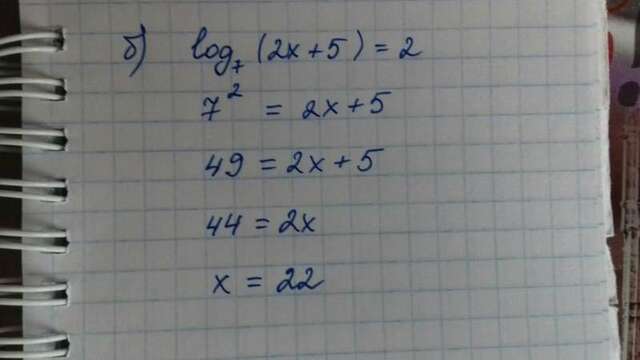 б) log₇ (2x+5) = 2
7² = 2x+5
49 = 2x+5
44 = 2x
x = 22